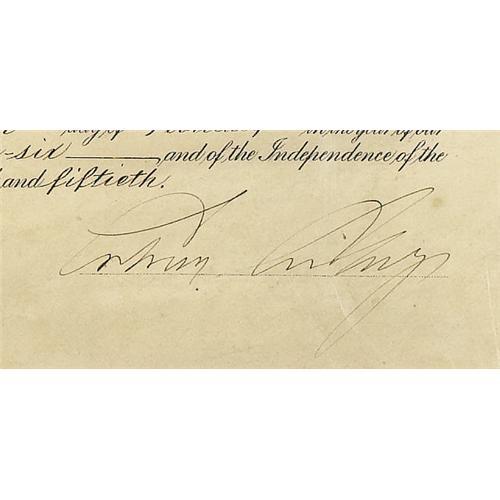 day of in the year of our
-six ———, and of the Independence of the
and fiftieth.
Calvin Coolidge